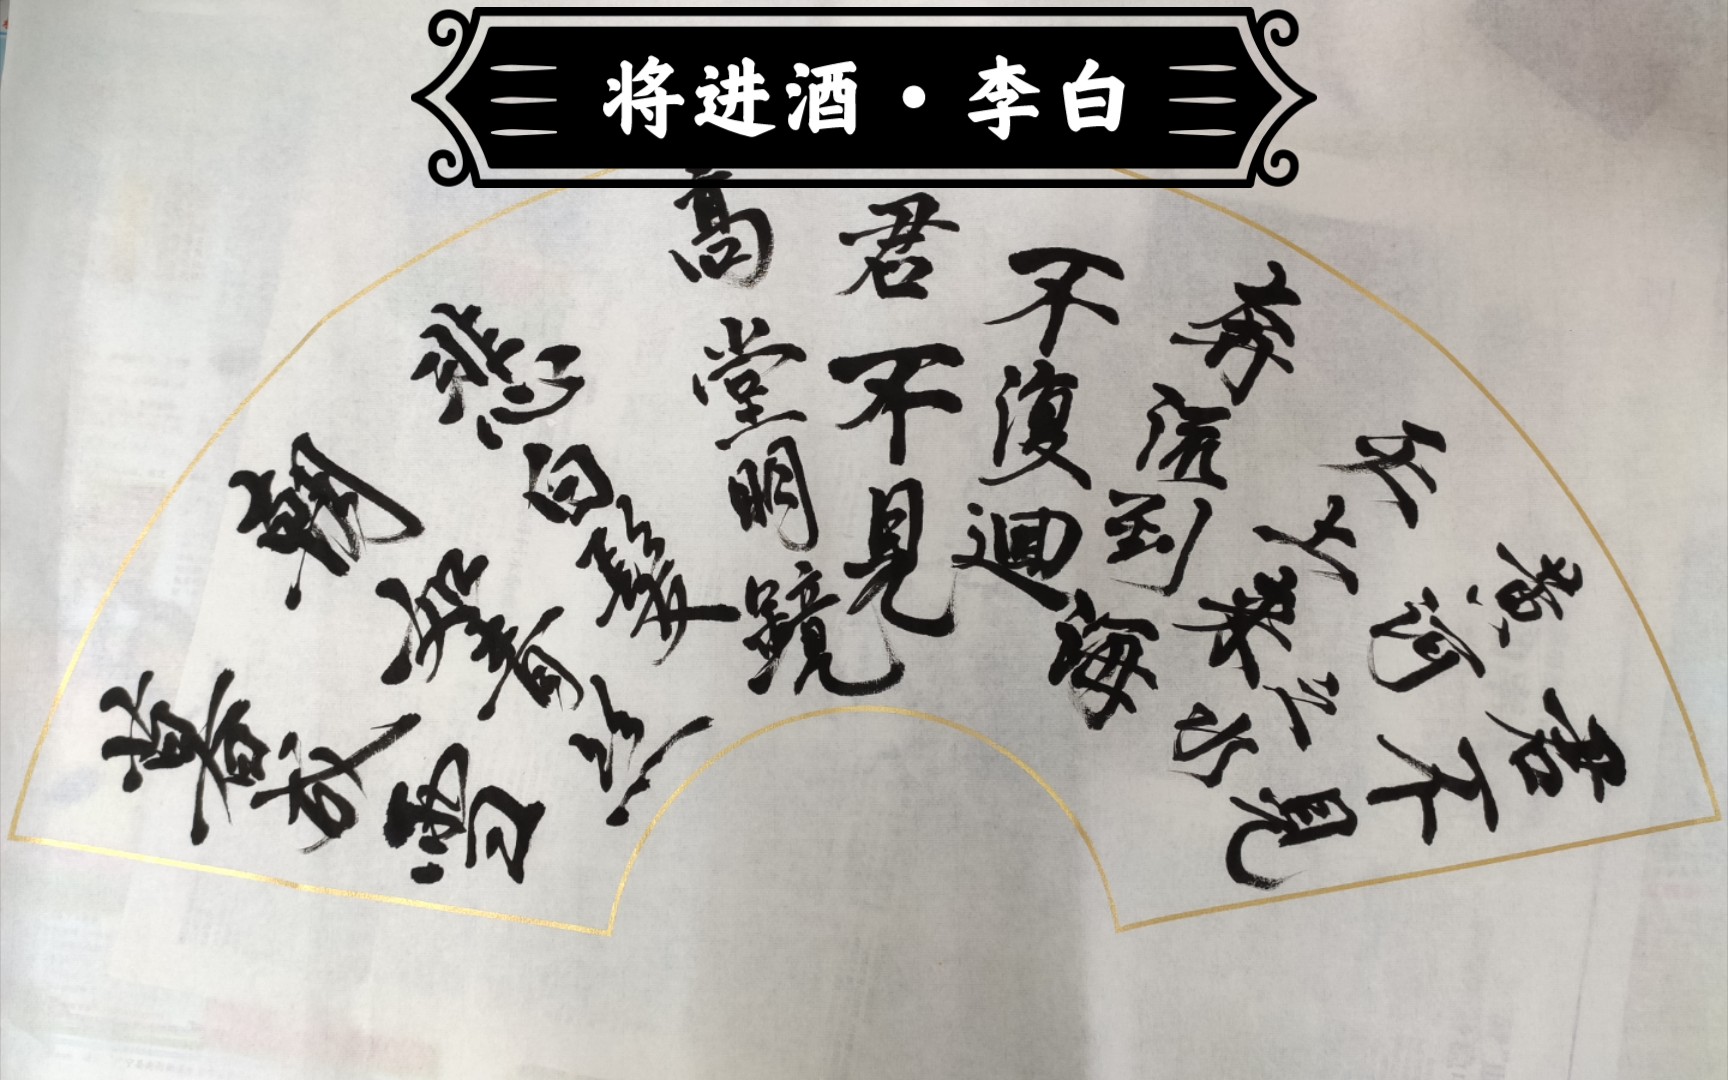 将进酒·李白
君不見
黄河之水
天上来
奔流到海
不復迴
君不見
高堂明鏡
悲白髮
朝如青絲
暮成雪